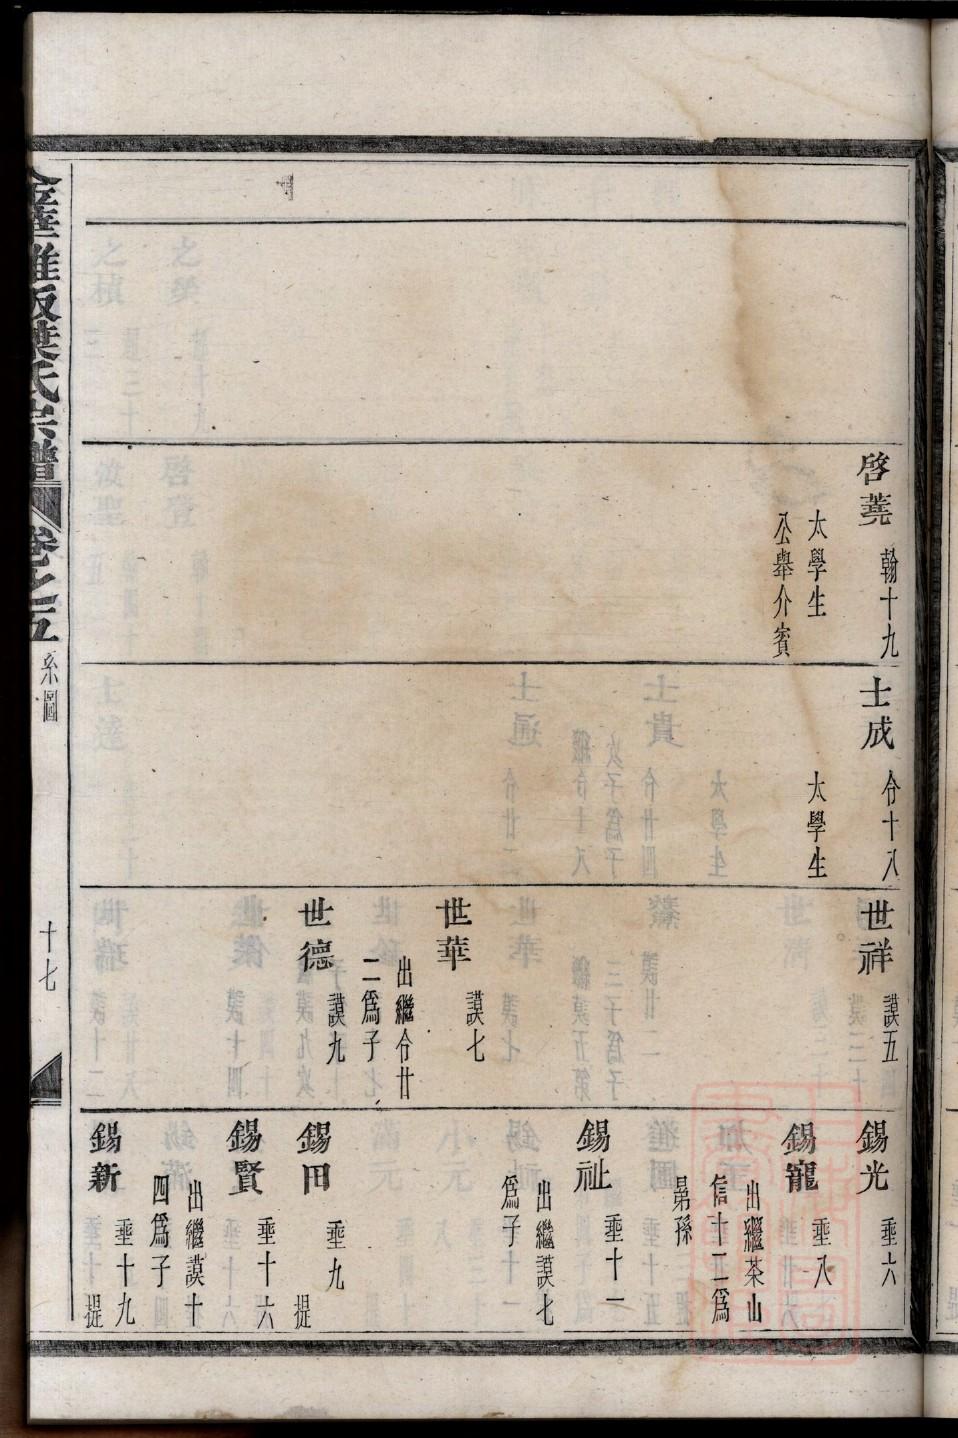 啓蕘 翰十九
太學生
公舉介賓
士成 令十八
太學生
世祥 謨五
世華 謨七
出繼令廿
二爲子
世德 謨九
錫光 垂六
錫寵 垂八
出繼茶山
信十二爲
弟孫
錫祉 垂十一
出繼謨七
爲子
錫田 垂九 提
錫賢 垂十六
出繼謨十
四爲子
錫新 垂十九 提
葉氏宗譜
卷之五
系圖
十七